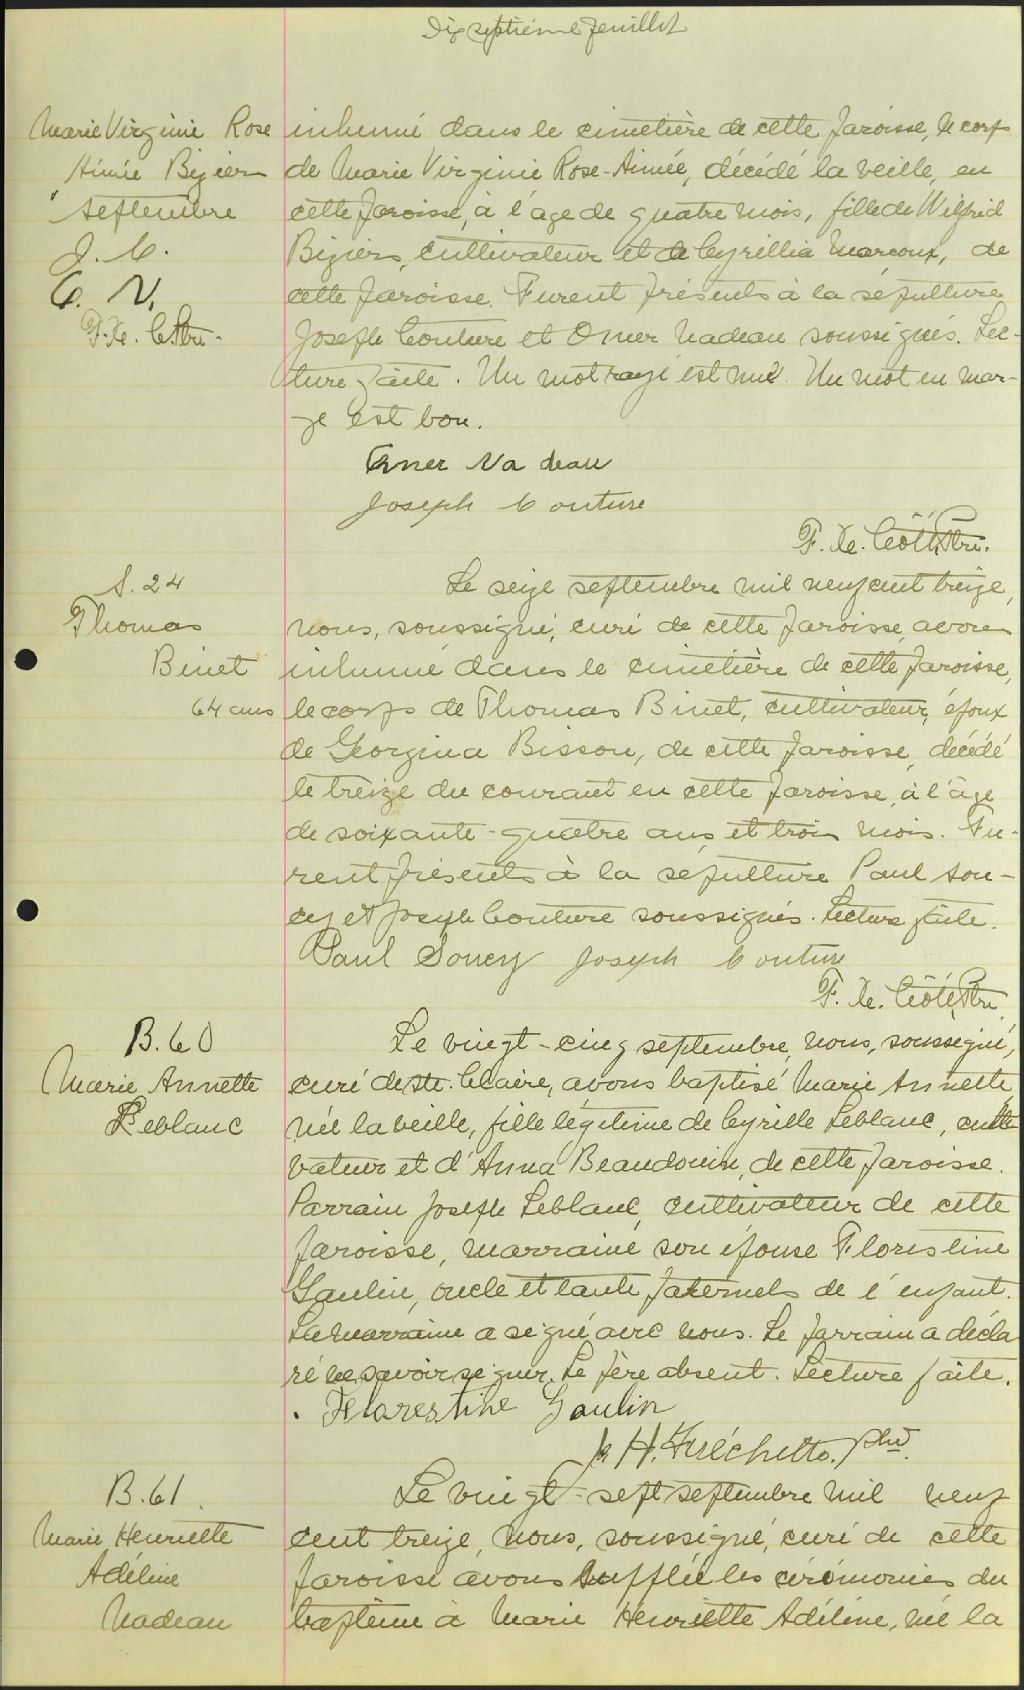 Dix septième feuillet
Marie Virginie Rose
Aimée Bizier
septembre
J. C.
O. N.
F. X. C. Ptre.
inhumé dans le cimetière de cette paroisse, le corps
de Marie Virginie Rose-Aimée, décédé la veille, en
cette paroisse, à l'âge de quatre mois, fille de Wilfrid
Bizier, cultivateur et de Cyrillia Marcoux, de
cette paroisse. Furent présents à la sépulture
Joseph Couture et Omer Nadeau soussignés. Lec-
ture faite. Un mot rayé est nul. Un mot en mar-
ge est bon.
Omer Nadeau
Joseph Couture
F. X. Côté, Ptre.
S. 24
Thomas
Binet
64 ans
Le seize septembre mil neuf cent treize,
nous, soussigné, curé de cette paroisse, avons
inhumé dans le cimetière de cette paroisse,
le corps de Thomas Binet, cultivateur, époux
de Georgina Bisson, de cette paroisse, décédé
le treize du courant en cette paroisse, à l'âge
de soixante-quatre ans et trois mois. Fu-
rent présents à la sépulture Paul Sou-
cy et Joseph Couture soussignés. Lecture faite.
Paul Soucy Joseph Couture
F. X. Côté, Ptre.
B. 60
Marie Annette
Leblanc
Le vingt-cinq septembre, nous, soussigné,
curé de Ste. Claire, avons baptisé Marie Annette
née la veille, fille légitime de Cyrille Leblanc, culti
vateur et d'Anna Beaudouin, de cette paroisse.
Parrain Joseph Leblanc, cultivateur de cette
paroisse, marraine son épouse Florestine
Gaulin, oncle et tante paternels de l'enfant.
La marraine a signé avec nous. Le parrain a décla
ré ne savoir signer. Le père absent. Lecture faite.
Florestine Gaulin
J. H. Fréchette. ptre.
B. 61.
Marie Henriette
Adéline
Nadeau
Le vingt-sept septembre mil neuf
cent treize, nous, soussigné, curé de cette
paroisse avons suppléé les cérémonies du
baptême à Marie Henriette Adéline, née la